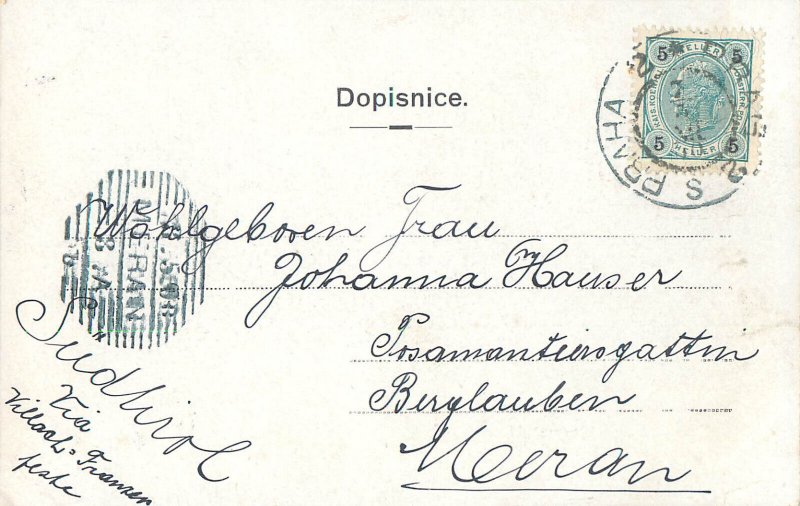 Dopisnice.
5 HELLER 5
5 HELLER 5
PRAHA
MERAN
Wohlgeboren Frau
Johanna Hauser
Posamantiersgattin
Berglauben
Meran
Südtirol
Via
Villach-Franzens
feste